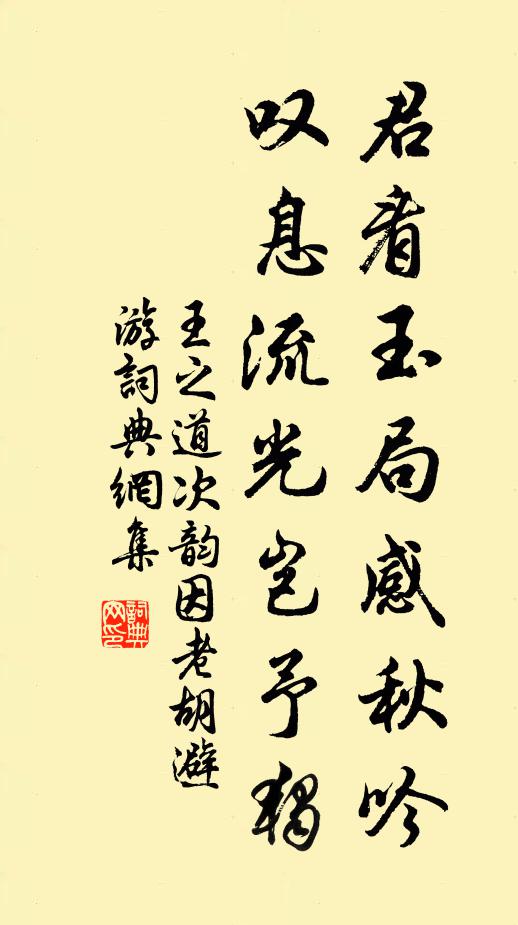 君看玉局感秋吟
叹息流光岂予獨
王之道次韵因老胡避
游詞典網集
詞典網印